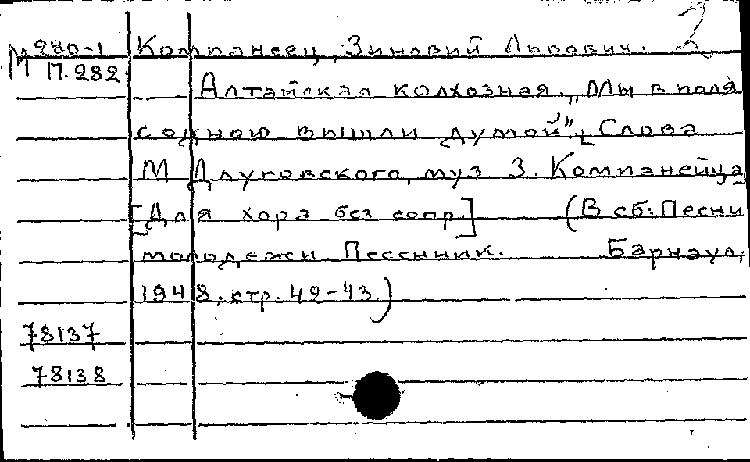 2
М 280-1 Компанеец, Зиновий Львович.
П.282
Алтайская колхозная. „Мы в поля
с одною вышли думой". Слова
М Длуковского, муз З. Компанейца
[Для хора без сопр.] (В сб: Песни
молодежи Песенник. Барнаул,
1948, стр. 42-43)
78137
78138